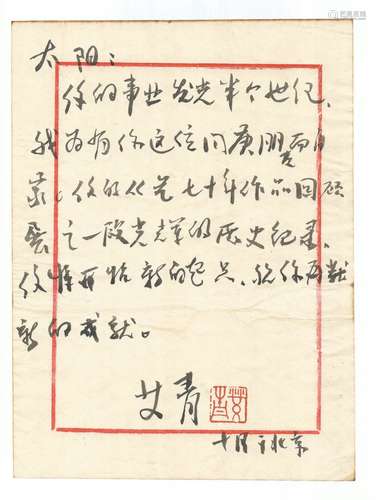 太阳：
你的事业发光半个世纪，
我为有你这位同庚朋友而自
豪。你的从艺七十年作品回顾
展是一段光辉的历史纪录，
你将开始新的起点，祝你再献
新的成就。
艾青
十月于北京